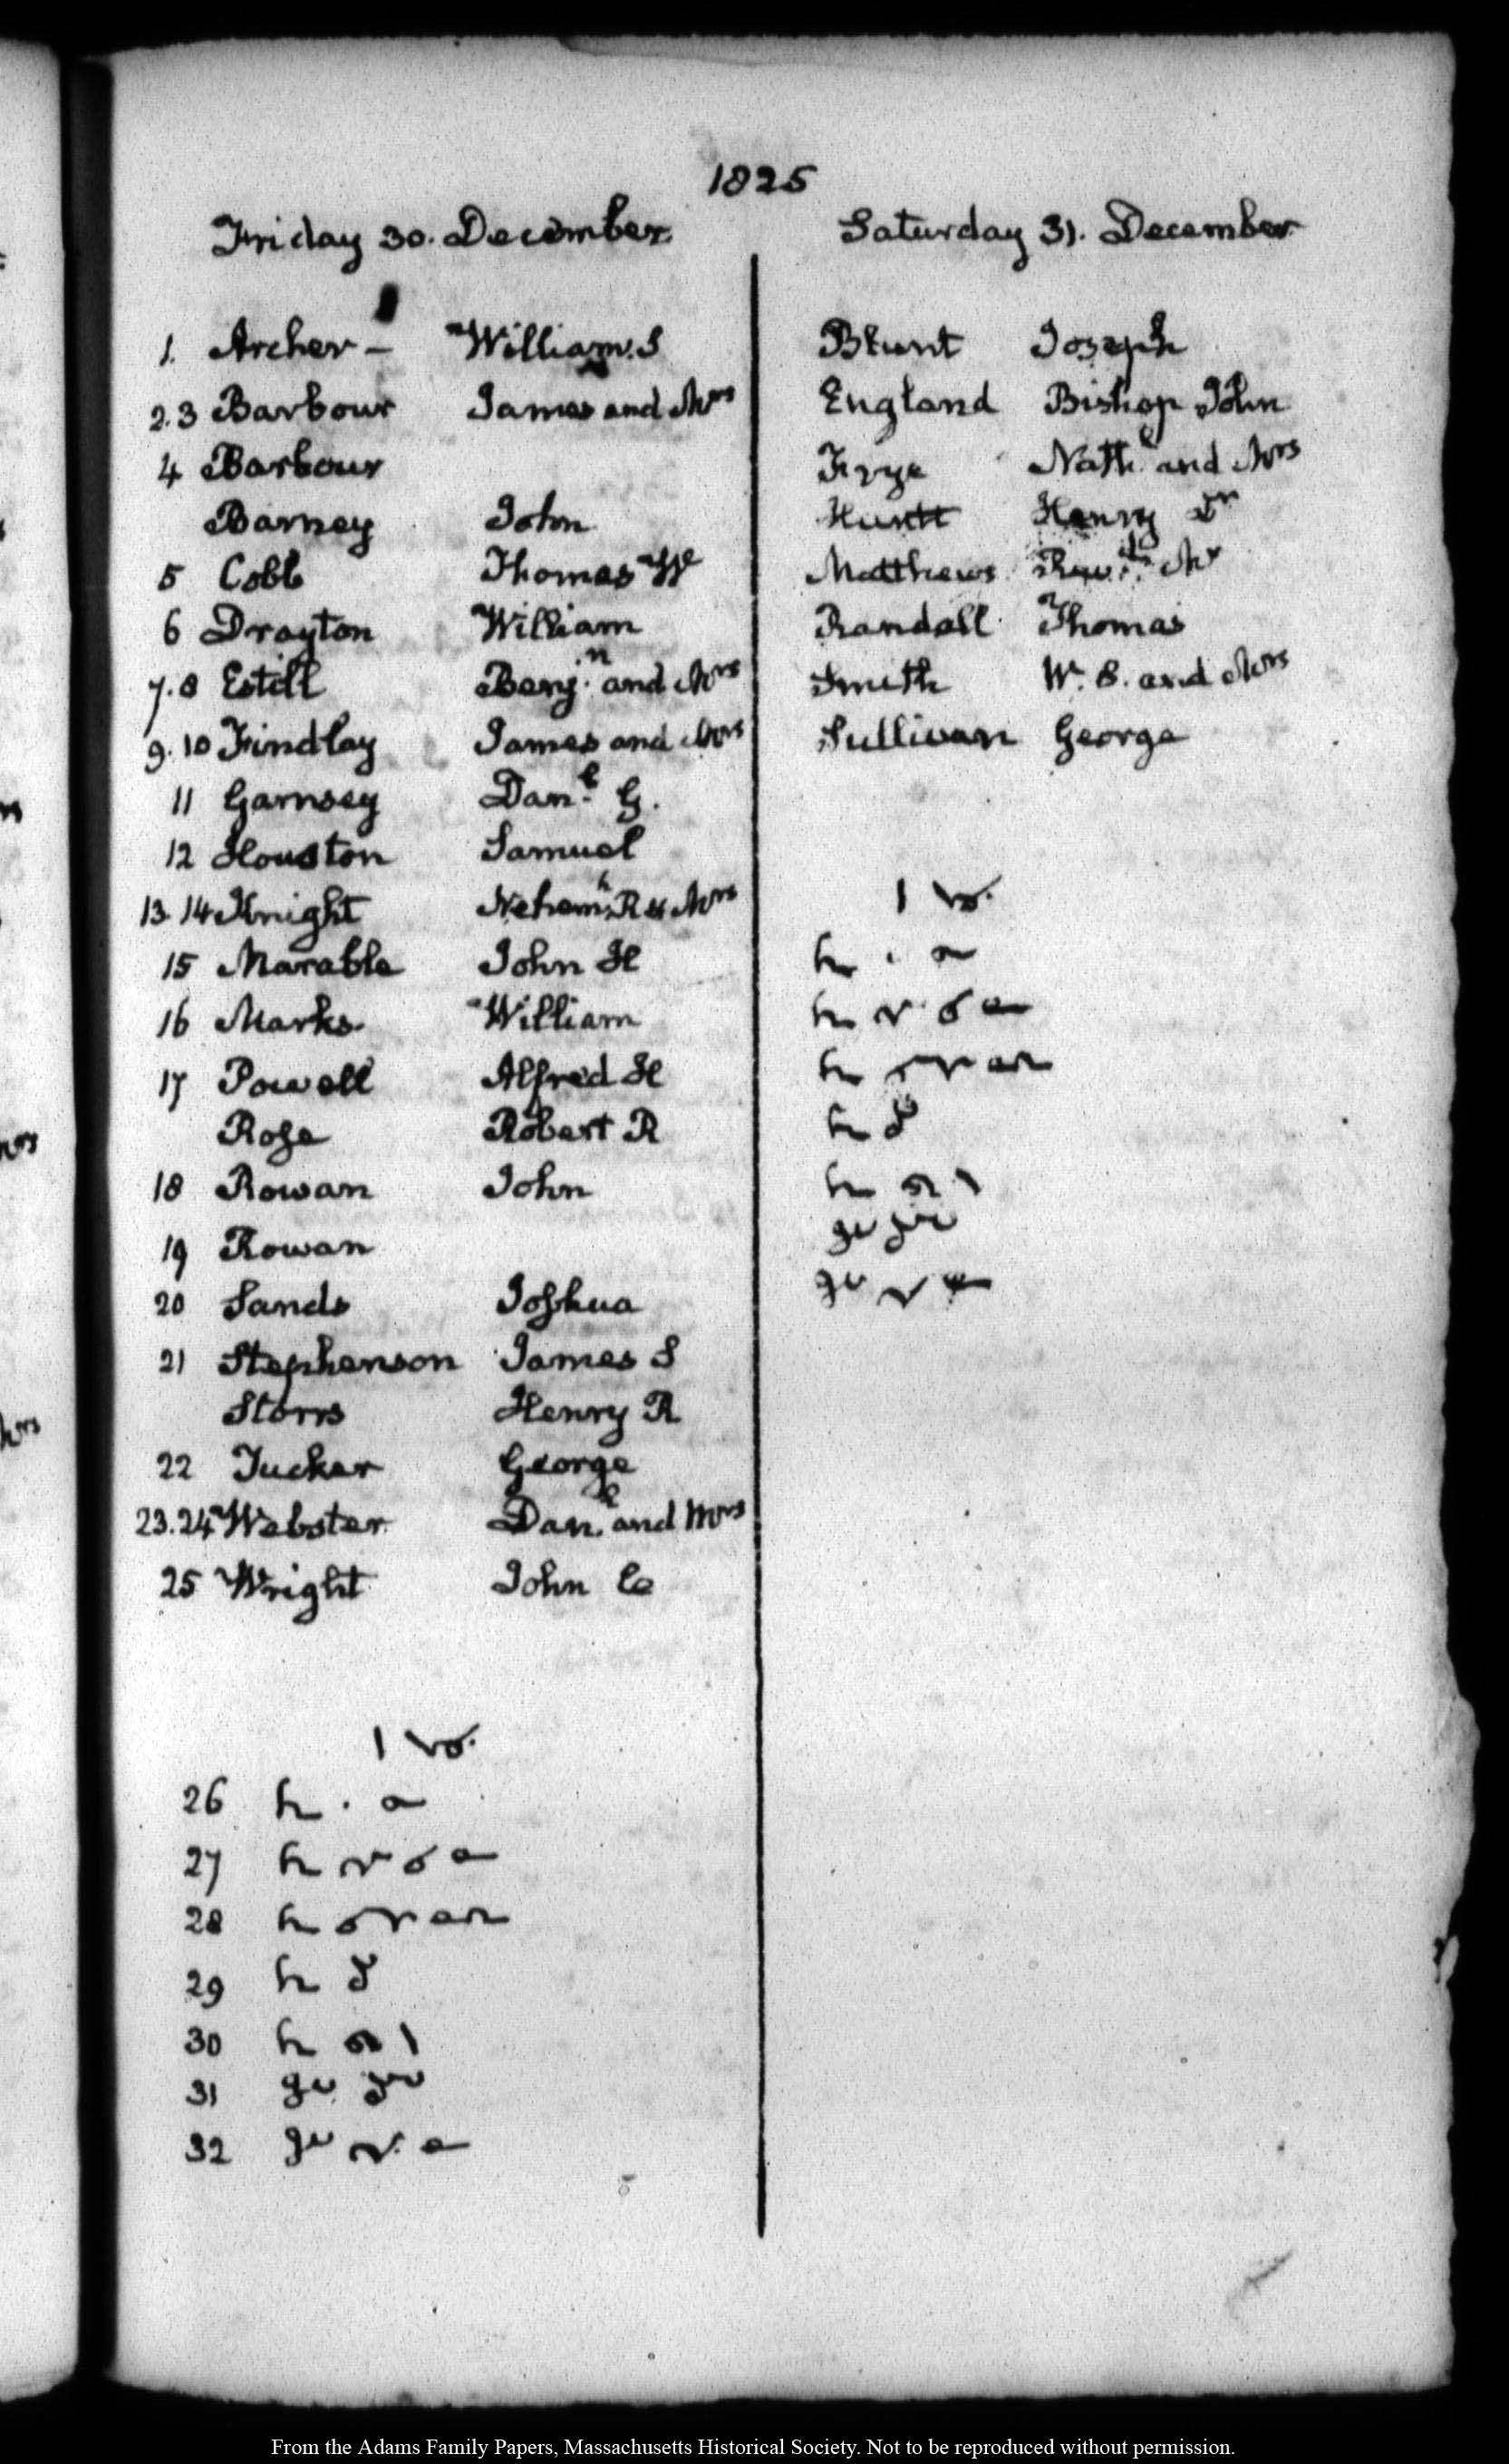 1825
Friday 30. December
1. Archer – William. S
2.3 Barbour James and Mrs
4 Barbour
Barney John
5 Cobb Thomas W
6 Drayton William
7.8 Estill Benj.n and Mrs
9.10 Findlay James and Mrs
11 Garnsey Dan.l G.
12 Houston Samuel
13.14 Knight Nehem.h R & Mrs
15 Marable John H
16 Marks William
17 Powell Alfred H
Rose Robert R
18 Rowan John
19 Rowan
20 Sands Joshua
21 Stephenson James S
Storrs Henry R
22 Tucker George
23.24 Webster Dan.l and Mrs
25 Wright John C
26
27
28
29
30
31
32
Saturday 31. December
Blunt Joseph
England Bishop John
Frye Nath.l and Mrs
Huntt Henry Dr
Matthews Mr
Randall Thomas
Smith W. B. and Mrs
Sullivan George
From the Adams Family Papers, Massachusetts Historical Society. Not to be reproduced without permission.